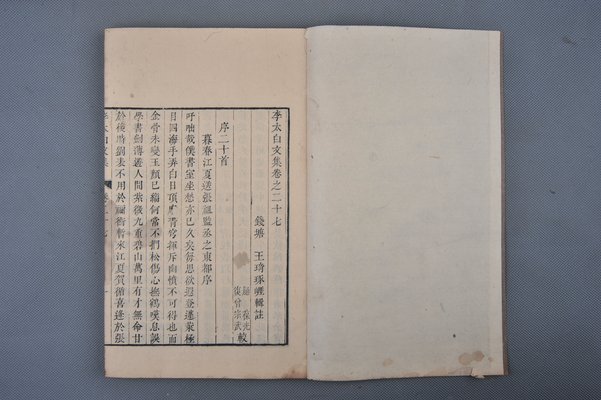 李太白文集卷之二十七
錢塘 王琦琢崖輯註
趙春光
復曾宗武較
序二十首
暮春江夏送張祖監丞之東都序
吁咄哉僕書室坐愁亦已久矣每思欲遐登蓬萊極
目四海手弄白日頂摩青穹揮斥幽憤不可得也而
金骨未變玉顏已緇何常不捫松傷心撫鶴嘆息誤
學書劍薄遊人間紫微九重碧山萬里有才無命甘
於後時劉表不用於禰衡暫來江夏賀循喜逢於張
李太白文集